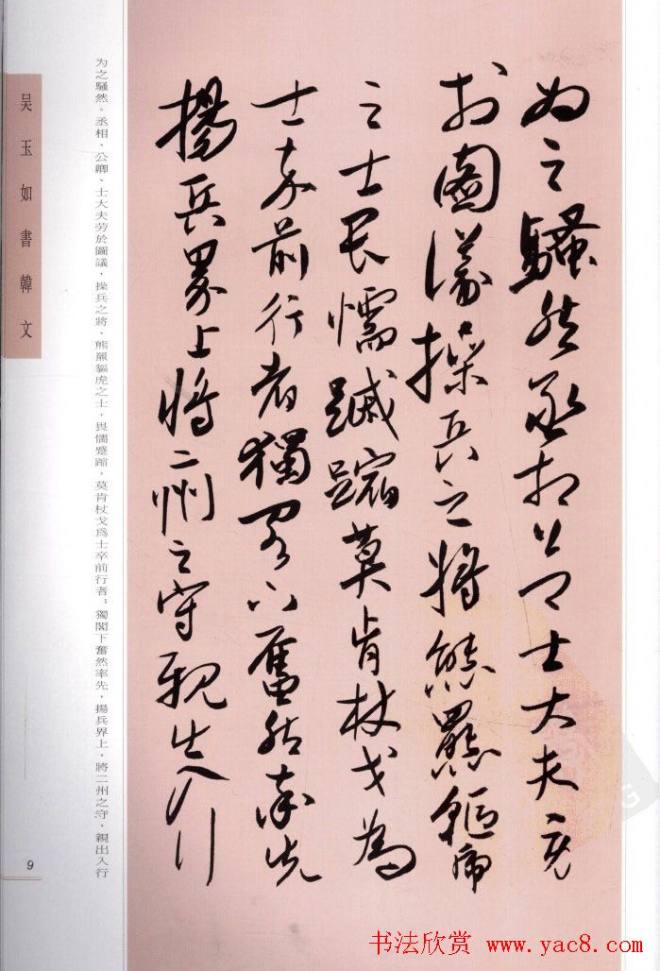 为之騷然丞相公卿士大夫劳
於圖議操兵之將熊羆貙虎
之士畏懦蹙蹜莫肯杖戈為
士卒前行者獨閣下奮然率先
揚兵界上將二州之守親出入行
为之騷然。丞相、公卿、士大夫劳於圖議，操兵之將、熊羆貙虎之士，畏懦蹙蹜，莫肯杖戈爲士卒前行者；獨閣下奮然率先，揚兵界上，將二州之守，親出入行
吴玉如書韓文
9
书法欣赏 www.yac8.com